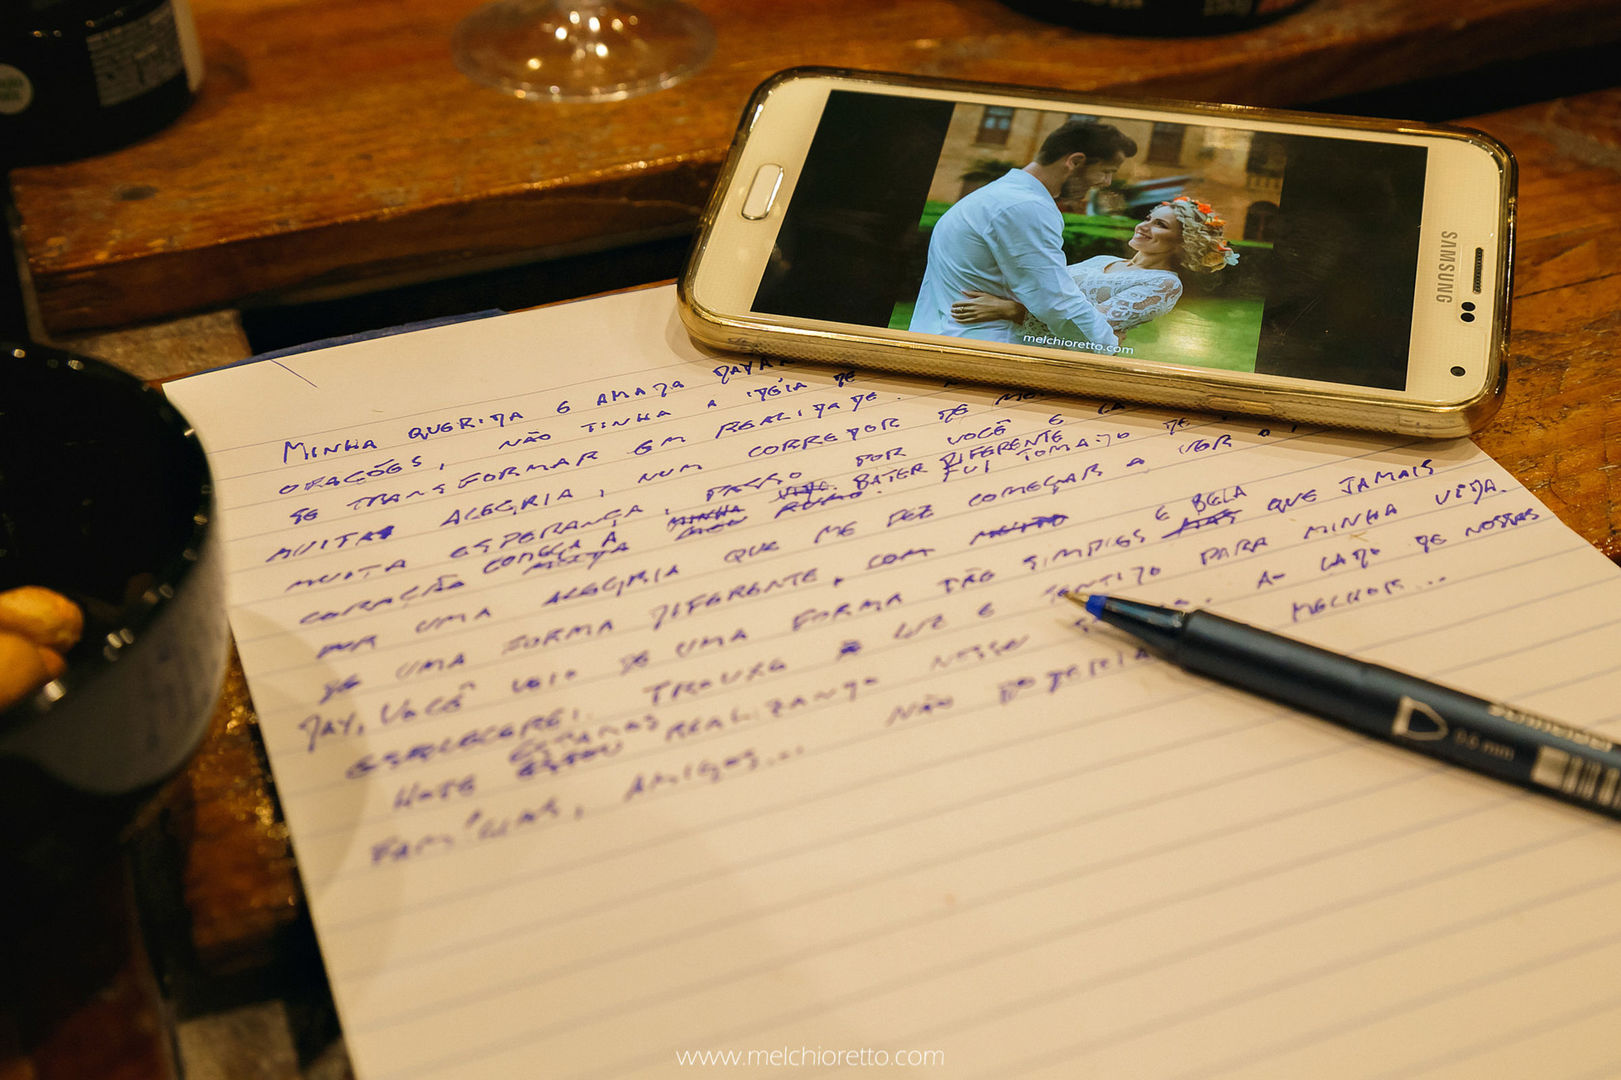 SAMSUNG
melchioretto.com
MINHA QUERIDA E AMADA DAYA
ORAÇÕES, NÃO TINHA A IDÉIA DE
SE TRANSFORMAR EM REALIDADE.
MUITA ALEGRIA, NUM CORREDOR DE
MUITA ESPERANÇA, POR VOCÊ E
CORAÇÃO COMEÇA A MINHA VIDA. BATER DIFERENTE
MEU RUMO. FUI TOMADO DE
POR UMA ALEGRIA QUE ME FEZ COMEÇAR A VER O
DE UMA FORMA DIFERENTE, COM MUITO E BELA
DAY, VOCÊ VEIO DE UMA FORMA TÃO SIMPLES MAS QUE JAMAIS
ESQUECEREI. TROUXE LUZ E SENTIDO PARA MINHA VIDA.
HOJE ESTAMOS REALIZANDO NESSE AO LADO DE NOSSAS
FAMÍLIAS, AMIGOS... NÃO PODERIA MELHOR...
0.5 mm
www.melchioretto.com